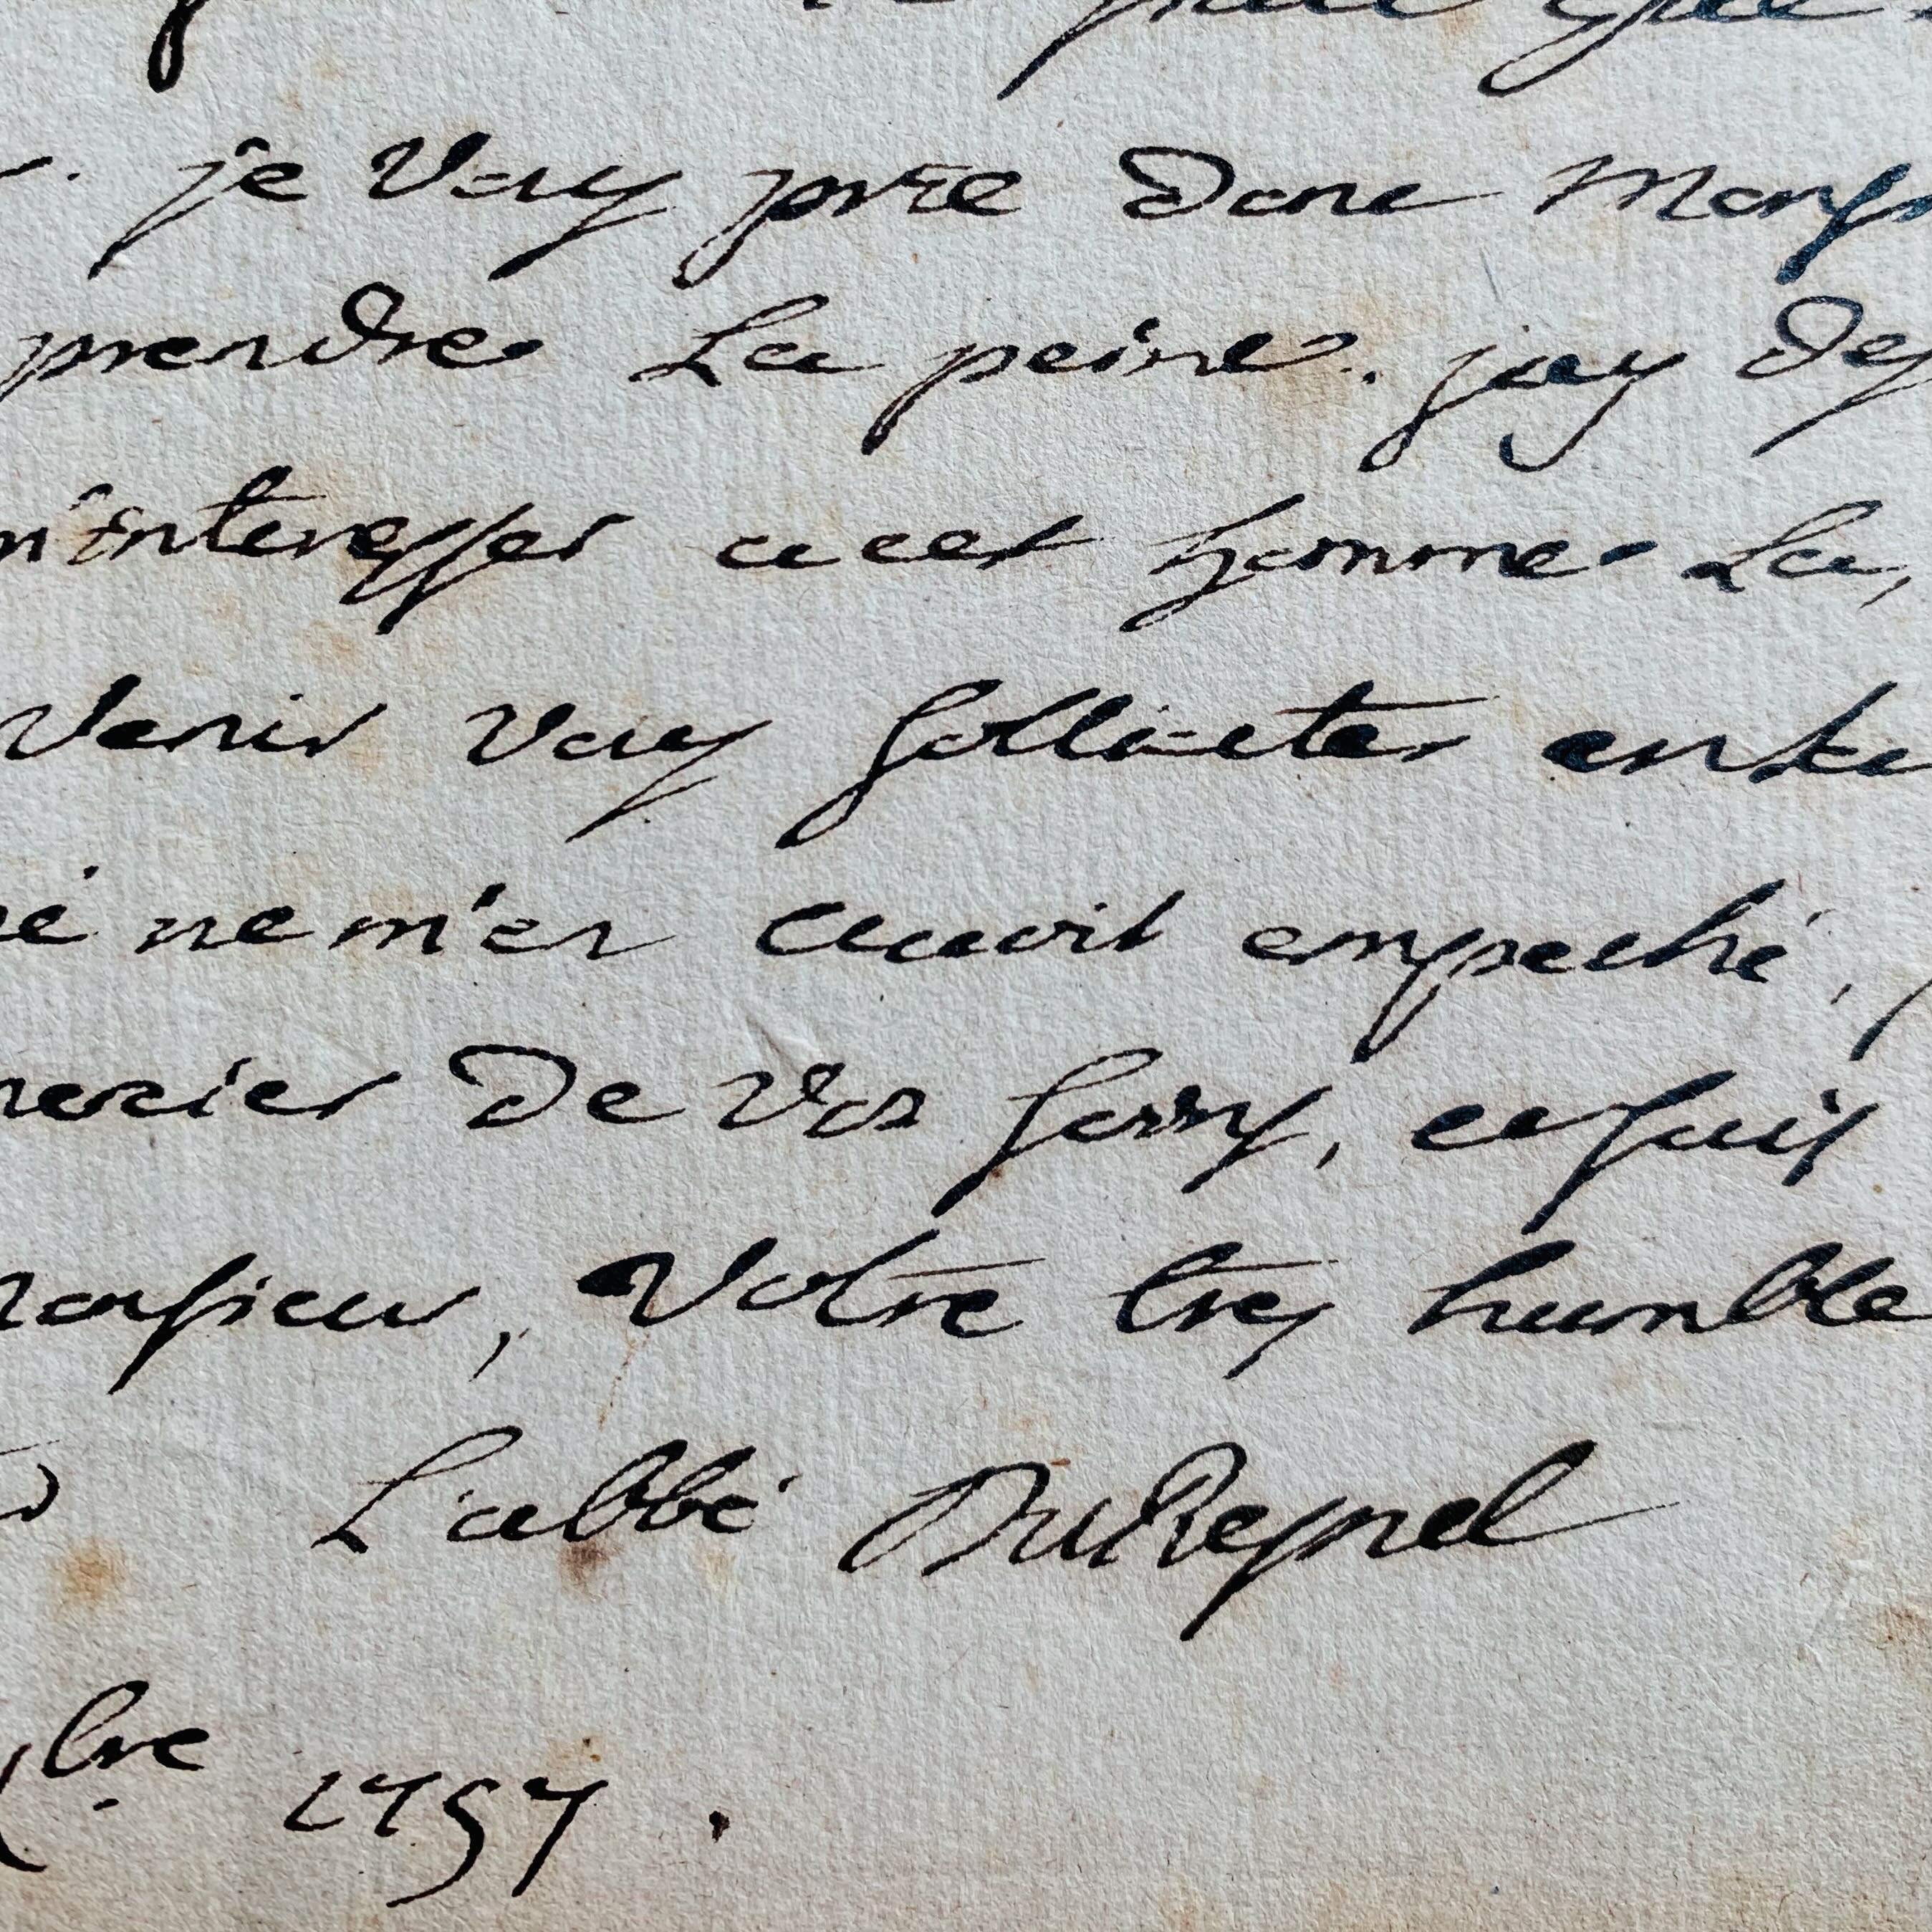 je vous prie donc Mons
prendre La peine. jay des
m'interesser a cet homme La,
Venir vous solliciter
ne m'en avoit empeché,
mercier De vos soins, et suis
Monsieur, Votre tres humble
L'abbé DuResnel
bre 1757.